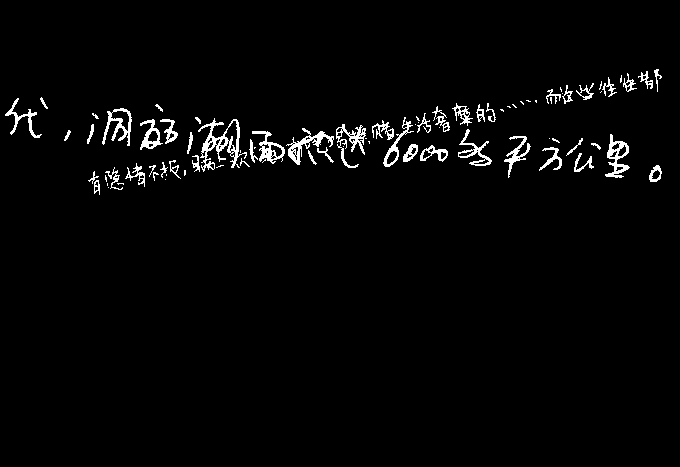 代，洞庭湖面积 6000多平方公里。
有隐情不报，瞒上欺下 赌 生活奢靡的……而这些往往都